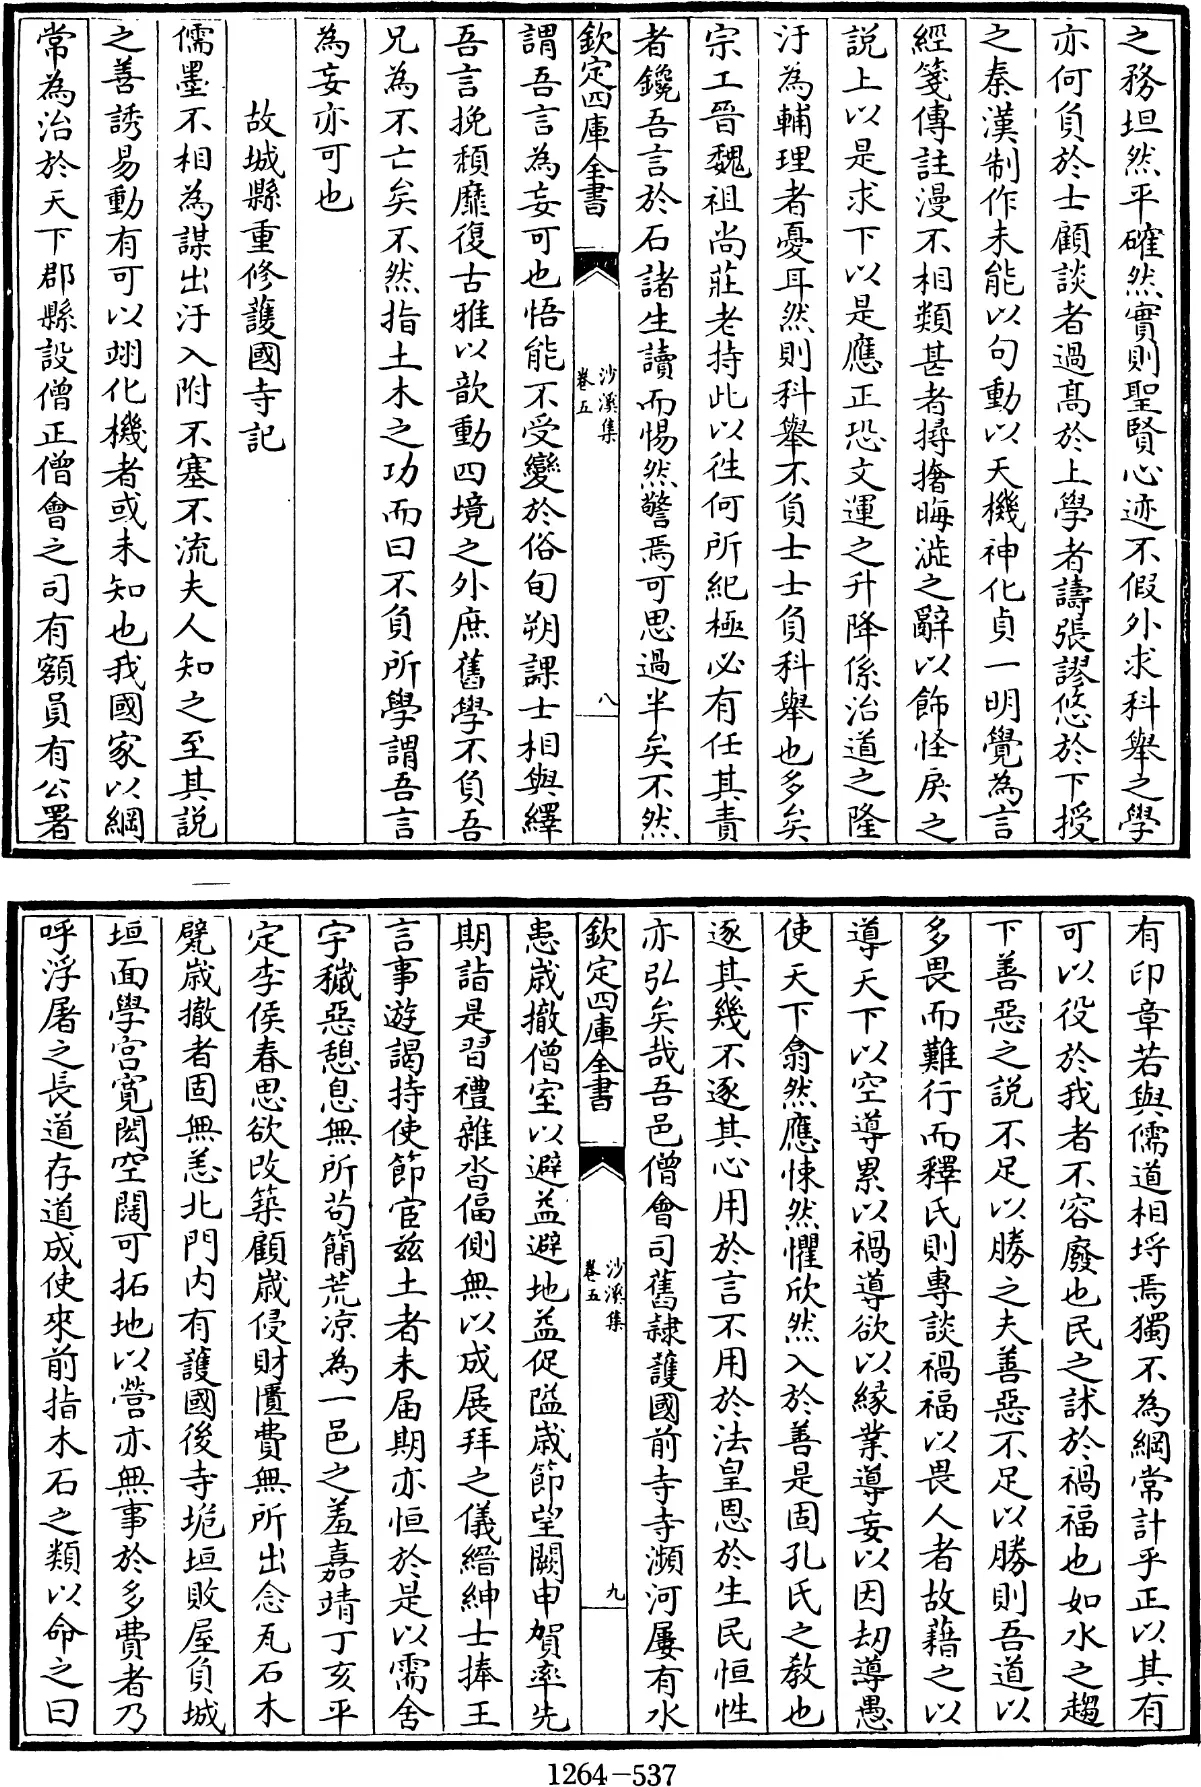 之務坦然平確然實則聖賢心迹不假外求科舉之學
亦何負於士顧談者過髙於上學者譸張謬悠於下授
之秦漢制作未能以句動以天機神化貞一明覺為言
經箋傳註漫不相類甚者撏撦晦澁之辭以飾怪戾之
說上以是求下以是應正恐文運之升降係治道之隆
汙為輔理者憂耳然則科舉不負士士負科舉也多矣
宗工晉魏祖尚莊老持此以徃何所紀極必有任其責
者鑱吾言於石諸生讀而惕然警焉可思過半矣不然
欽定四庫全書
沙溪集
卷五
八
謂吾言為妄可也悟能不受變於俗旬朔課士相與繹
吾言挽頽靡復古雅以歆動四境之外庶舊學不負吾
兄為不亡矣不然指土木之功而曰不負所學謂吾言
為妄亦可也
故城縣重修䕶國寺記
儒墨不相為謀出汙入附不塞不流夫人知之至其説
之善誘易動有可以翊化機者或未知也我國家以綱
常為治於天下郡縣設僧正僧會之司有額員有公署
有印章若與儒道相埒焉獨不為綱常計乎正以其有
可以役於我者不容廢也民之訹於禍福也如水之趨
下善惡之説不足以勝之夫善惡不足以勝則吾道以
多畏而難行而釋氏則專談禍福以畏人者故藉之以
導天下以空導累以禍導欲以縁業導妄以因刧導愚
使天下翕然應悚然懼欣然入於善是固孔氏之教也
逐其幾不逐其心用於言不用於法皇恩於生民恒性
亦弘矣哉吾邑僧會司舊隷䕶國前寺寺瀕河屢有水
患歲撤僧室以避益避地益促隘歲節望闕申賀率先
期詣是習禮雜沓偪側無以成展拜之儀縉紳士捧王
言事遊謁持使節宦兹土者未届期亦恒於是以需舍
宇穢惡憩息無所茍簡荒凉為一邑之羞嘉靖丁亥平
定李侯春思欲改築顧歲侵財匱費無所出念瓦石木
甓歲撤者固無恙北門内有䕶國後寺垝垣敗屋負城
垣面學宫寛閎空闊可拓地以營亦無事於多費者乃
呼浮屠之長道存道成使來前指木石之類以命之曰
1264—537